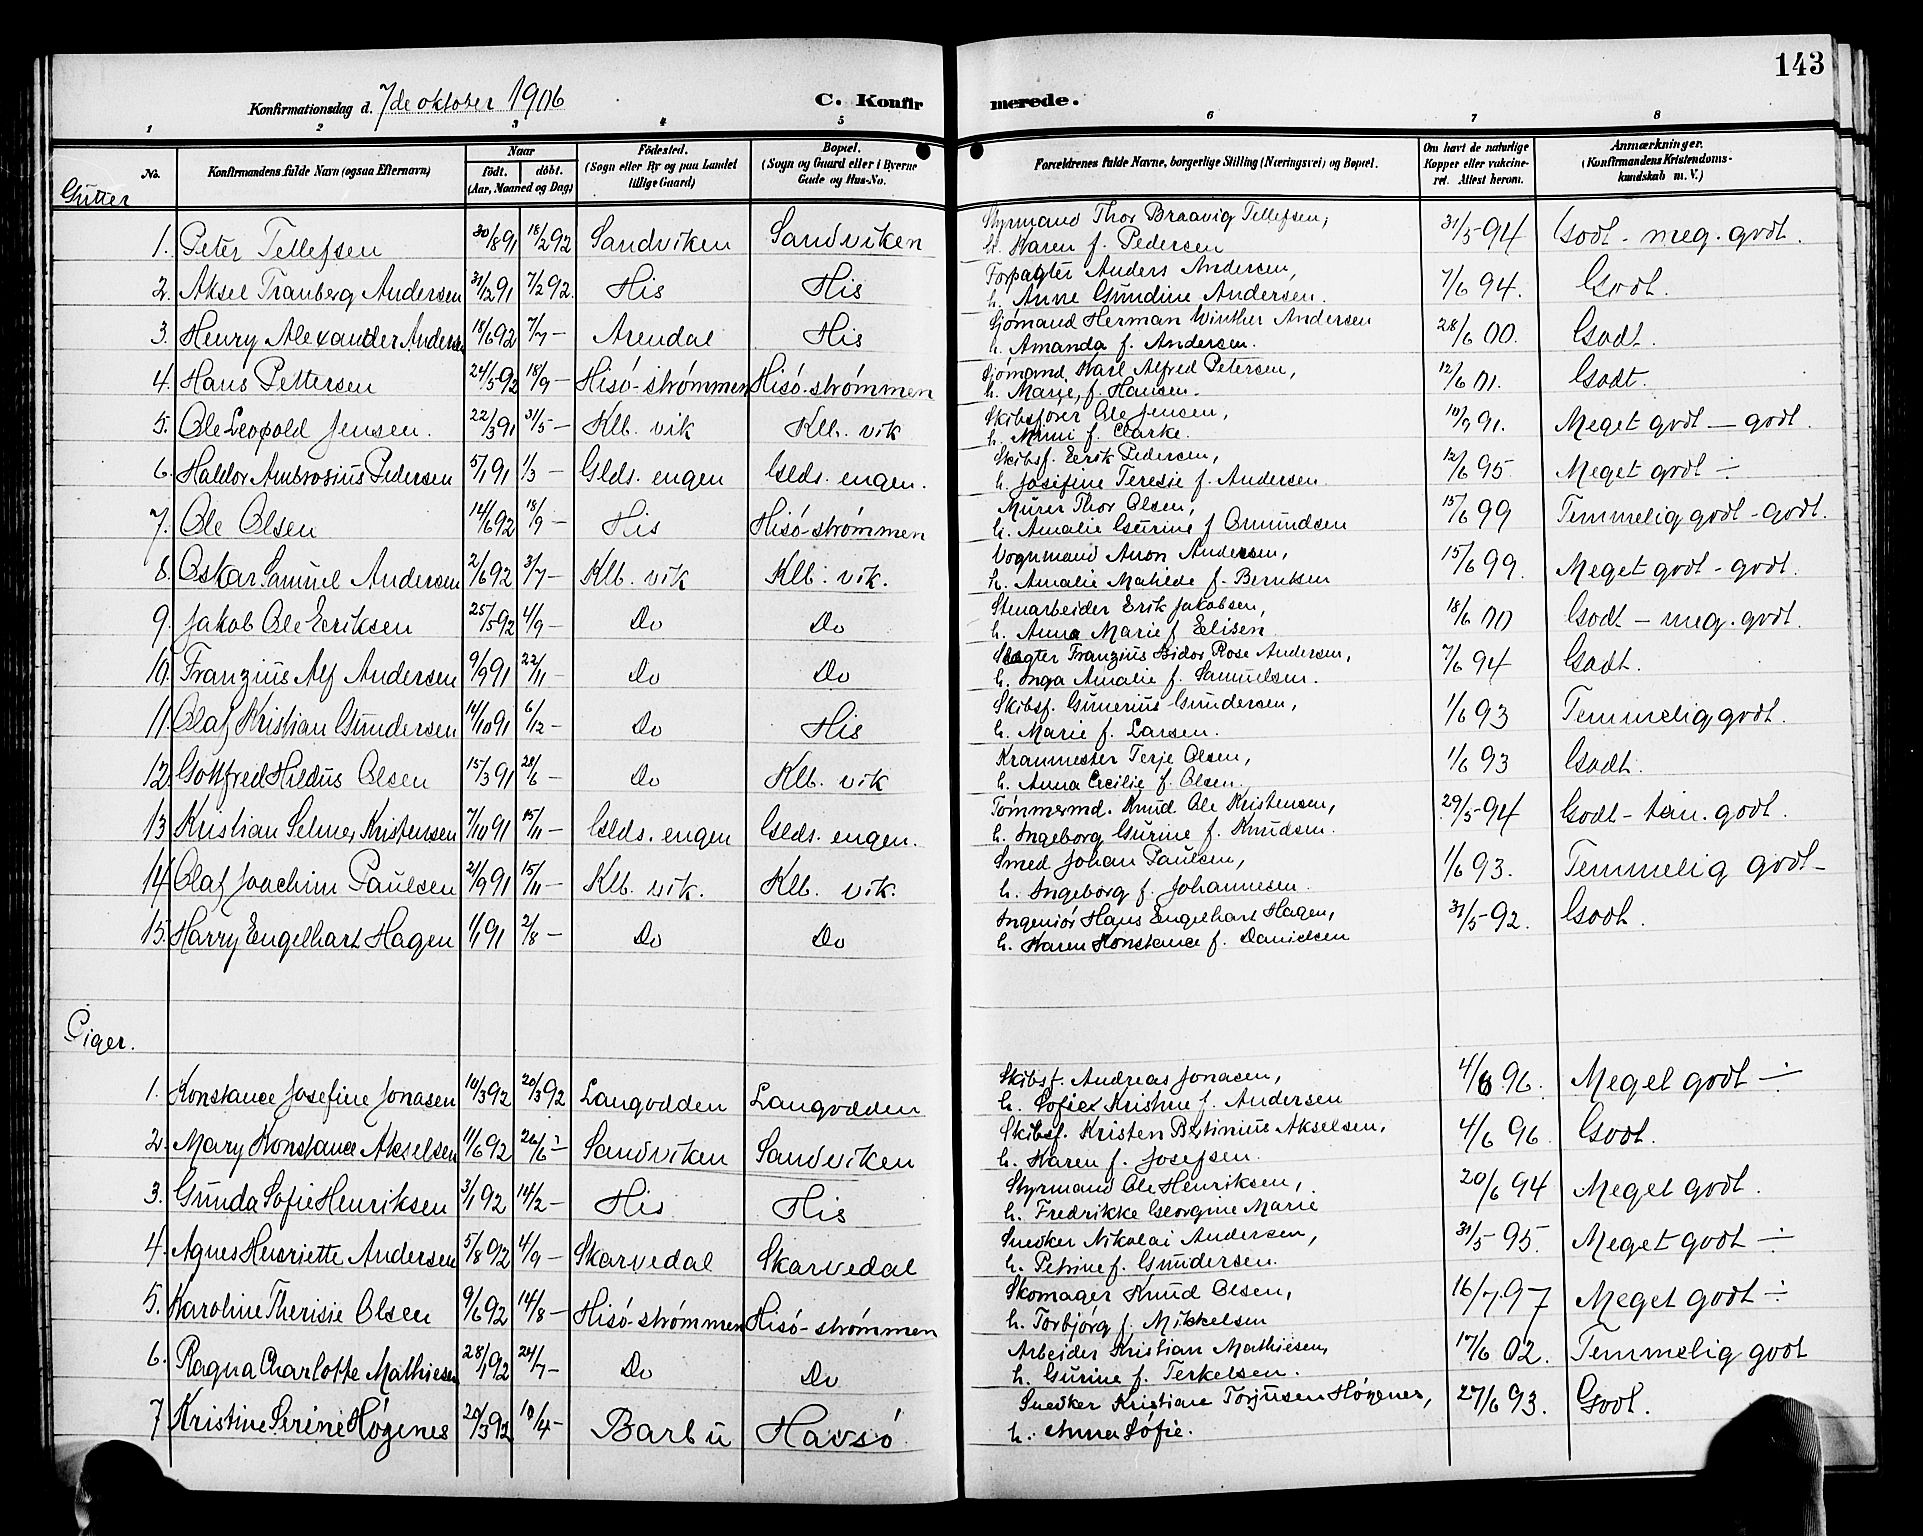 143
Konfirmationsdag d. 7de oktober 1906 C. Konfirmerede.
1 2 3 4 5 6 7 8
No. Konfirmandens fulde Navn (ogsaa Efternavn) Naar født. døbt. (Aar, Maaned og Dag) Fødested. (Sogn eller By og paa Landet tillige Gaard) Bopæl. (Sogn og Gaard eller i Byerne Gade og Hus-No. Forældrenes fulde Navne, borgerlige Stilling (Næringsvei) og Bopæl. Om havt de naturlige Kopper eller vakcineret. Attest herom. Anmærkninger. (Konfirmandens Kristendomskundskab m. V.)
Gutter
1. Peter Tellefsen 30/8 91 18/2 92 Sandviken Sandviken Styrmand Thor Braavig Tellefsen, h. Karen f. Pedersen 31/5-94 Godt - meg. godt.
2. Aksel Tranberg Andersen 31/12 91 7/2 92. His His Forpagter Anders Andersen, h. Anne Gundine Andersen. 7/6 94. Godt.
3. Henry Alexander Andersen 18/6 92 7/7 - Arendal His Sjømand Herman Winther Andersen h. Amanda f. Andersen. 28/6 00. Godt.
4. Hans Pettersen 24/5 92 18/9 - Hisö-strømmen Hisö-strømmen Sjømand Karl Alfred Petersen, h. Marie, f. Hansen. 12/6 01. Godt.
5. Ole Leopold Jensen. 22/3 91 31/5 - Klb. vik Klb. vik Skibsfører Ole Jensen, h. Mimi f. Clarke. 10/9 91. Meget godt - godt.
6. Haldor Ambrosius Pedersen 5/1 91 1/3 - Glds. engen Glds. engen. Skibsf. Eerik Pedersen, h. Josefine Teresie f. Andersen 12/6 95. Meget godt ÷
7. Ole Olsen 14/6 92 18/9 - His Hisö-strømmen Murer Thor Olsen, h. Amalie Gurine f Osmundsen 15/6 99 Temmelig godt - godt.
8. Oskar Samuel Andersen 2/6 92 3/7 - Klb. vik Klb. vik. Vognmand Anon Andersen, h. Amalie Matilde f. Berntsen 15/6 99. Meget godt - godt.
9. Jakob Ole Eeriksen 25/5 92 4/9 - Do Do Stenarbeider Erik Jakobsen, h. Anna Marie f Eelisen 18/6 00 Godt - meg. godt.
10. Franzius Alf Andersen 9/9 91 22/11 - Do Do Slagter Franzius Isidor Rose Andersen, h. Inga Amalie f. Samuelsen. 7/6 94 Godt.
11. Olaf Kristian Gundersen 14/10 91 6/12 - Do His Skibsf. Gunerius Gundersen, h. Marie f. Larsen. 1/6 93 Temmelig godt.
12. Gottfred Hildus Olsen 15/3 91 28/6 - Do Klb. vik Kranmester Terje Olsen, h. Anna Cecilie f. Olsen. 1/6 93 Godt.
13. Kristian Selmer Kristensen 7/10 91 15/11 - Glds. engen Glds. engen. Tømmermd. Knud Ole Kristensen, h. Ingeborg Gurine f. Knudsen. 29/5-94 Godt - tem. godt.
14. Olaf Joachim Paulsen 21/9 91 15/11 - Klb. vik. Klb. vik. Smed Johan Paulsen, h. Ingeborg f. Johannesen. 1/6 93. Temmelig godt -
15. Harry Engelhart Hagen 1/1 91 2/8 - Do Do Ingeniør Hans Engelhart Hagen, h. Karen Konstance f. Danielsen 31/5-92. Godt.
Piger.
1. Konstance Josefine Jonasen 10/3 92 20/3 92 Langodden Langodden Skibsf. Andreas Jonasen, h. Sofie Kristine f. Andersen 4/8 96. Meget godt ÷
2. Mary Konstance Akselsen 11/6 92 26/6 - Sandviken Sandviken Skibsf. Kristen Bertinius Akselsen, h. Karen f. Josefsen. 4/6 96. Godt.
3. Gunda Sofie Henriksen 3/1 92 14/2 - His His Styrmand Ole Henriksen, h. Fredrikke Georgine Marie 20/6 94 Meget godt.
4. Agnes Henriette Andersen 5/8 92 4/9 - Skarvedal Skarvedal Snedker Nikolai Andersen, h. Petrine f. Gundersen. 31/5 95. Meget godt ÷
5. Karoline Therisie Olsen 9/6 92 14/8 - Hisö-strømmen Hisö-strømmen Skomager Knud Olsen, h. Torbjørg f. Mikkelsen 16/7 97 Meget godt ÷
6. Ragna Charlotte Mathiesen 28/1 92 24/7 - Do Do Arbeider Kristian Mathiesen, h. Gurine f. Terkelsen. 17/6 02. Temmelig godt
7 Kristine Serine Høgenes 20/3 92 10/4 - Barbu Havsö Snedker Kristian Torjusen Høgenes, h. Anna Sofie. 27/6 93. Godt.